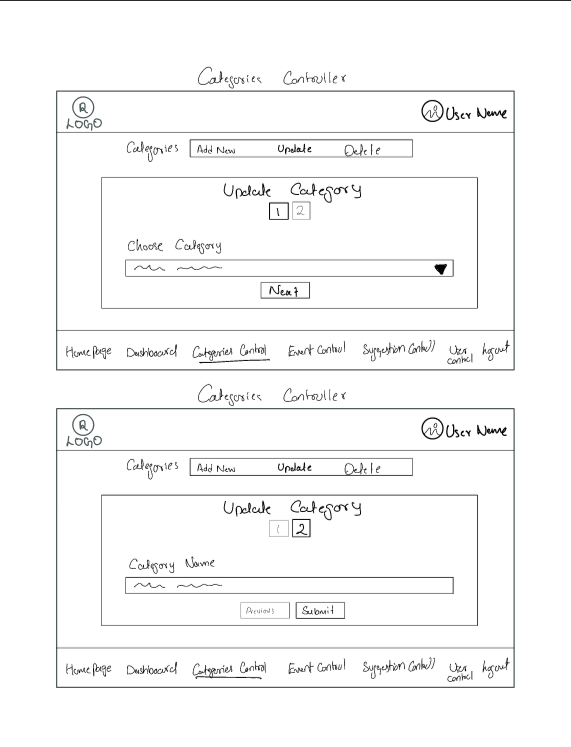 Categories Controller
R
LOGO
User Name
Categories Add New Update Delete
Update Category
1 2
Choose Category
Next
Home Page Dashboard Categories Control Event Control Suggestion Control User control logout
Categories Controller
R
LOGO
User Name
Categories Add New Update Delete
Update Category
1 2
Category Name
Previous Submit
Home Page Dashboard Categories Control Event Control Suggestion Control User control logout